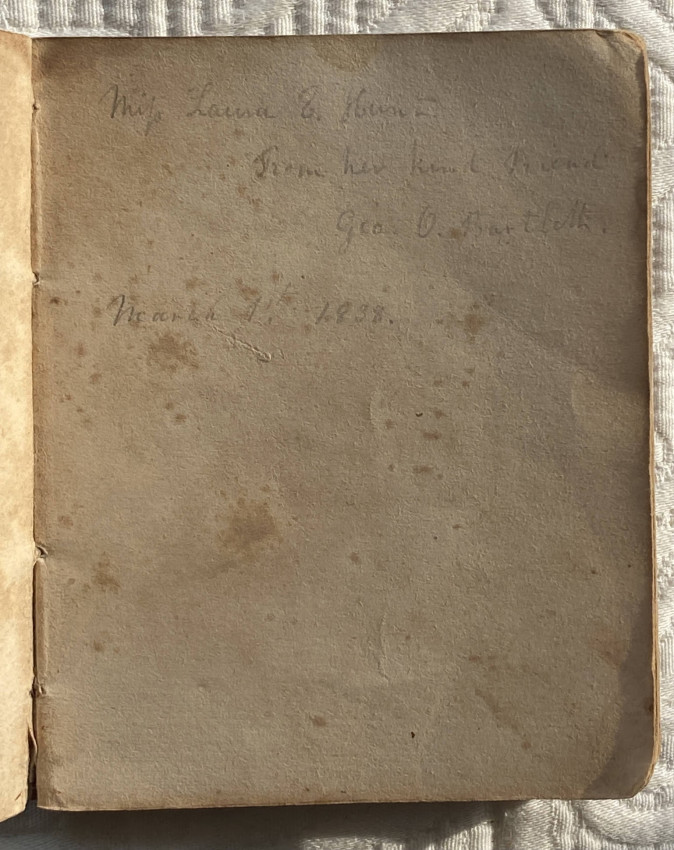 Miss Laura E. Hunt
From her kind Friend
Geo. O. Bartlett.
March 1st 1838.